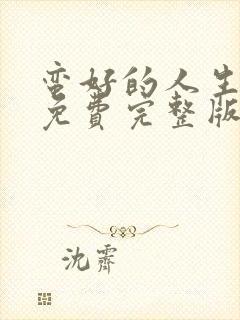 蛮好的人生
免费完整版
沈霁